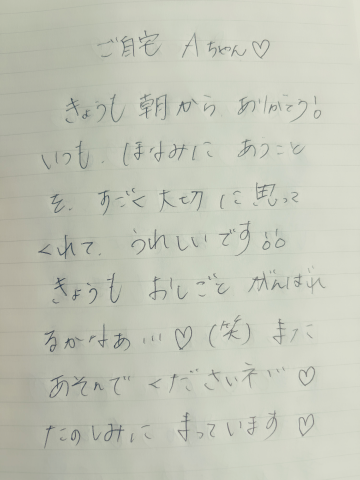 ご自宅 Aちゃん♡
きょうも 朝から ありがとう!!
いつも、ほなみに あうこと
を、すごく大切に思って
くれて、うれしいです!!
きょうも おしごと がんばれ
るかなぁ…♡(笑) また
あそんで くださいネ…♡
たのしみに まっています♡